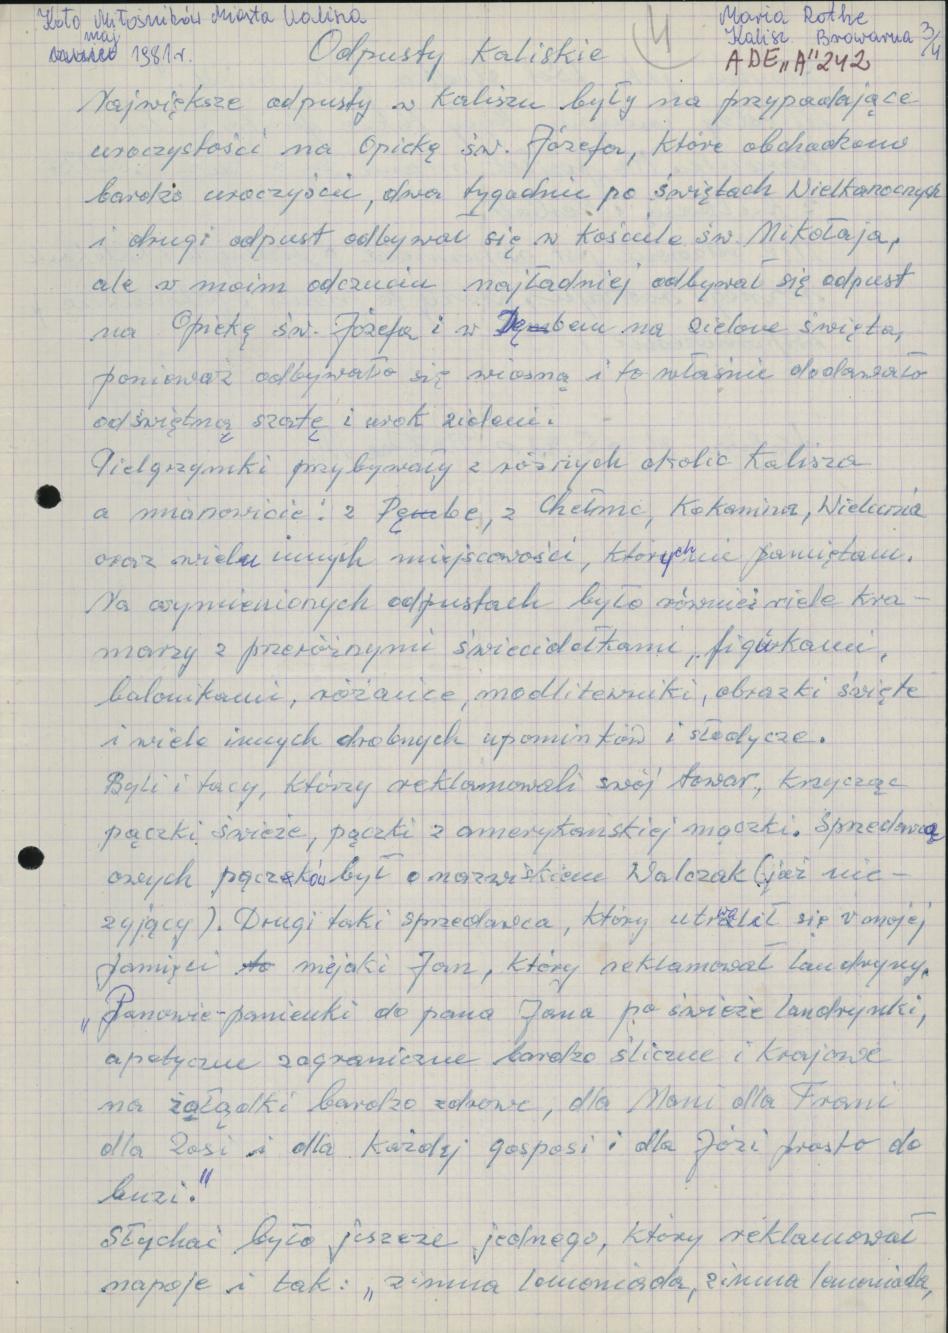 Koło Miłośników Miasta Kalisza
maj
1981 r.
4
Maria Rothe
Kalisz Browarna 3/4
ADE „A" 242
Odpusty Kaliskie
Największe odpusty w Kaliszu były na przypadające
uroczystości na Opiekę św. Józefa, które obchodzono
bardzo uroczyście, dwa tygodnie po świętach Wielkanocnych
i drugi odpust odbywał się w Kościele św. Mikołaja,
ale w moim odczuciu najładniej odbywał się odpust
na Opiekę św. Józefa i w Dębem na zielone święta,
ponieważ odbywało się wiosną i to właśnie dodawało
odświętną szatę i urok zieleni.
Pielgrzymki przybywały z różnych okolic Kalisza
a mianowicie: z Dębe, z Chełmc, Kokanina, Wielunia
oraz wielu innych miejscowości, których nie pamiętam.
Na wymienionych odpustach było również wiele kra-
marzy z przeróżnymi świecidełkami, figórkami,
balonikami, różańce, modlitewniki, obrazki święte
i wiele innych drobnych upominków i słodycze.
Byli i tacy, którzy reklamowali swój towar, krzycząc
pączki świeże, pączki z amerykańskiej mączki. Sprzedawcą
owych pączków był o nazwiskiem Walczak (już nie-
żyjący). Drugi taki sprzedawca, który utrwalił się w mojej
pamięci to niejaki Jan, który reklamował landryny.
„Panowie-panienki do pana Jana po świeże landrynki,
apetyczne zagraniczne bardzo śliczne i krajowe
na żołądki bardzo zdrowe, dla Mani dla Frani
dla Zosi i dla każdej gosposi i dla Józi prosto do
buzi."
Słychać było jeszcze jednego, który reklamował
napoje i tak: „zimna lemoniada, zimna lemoniada,